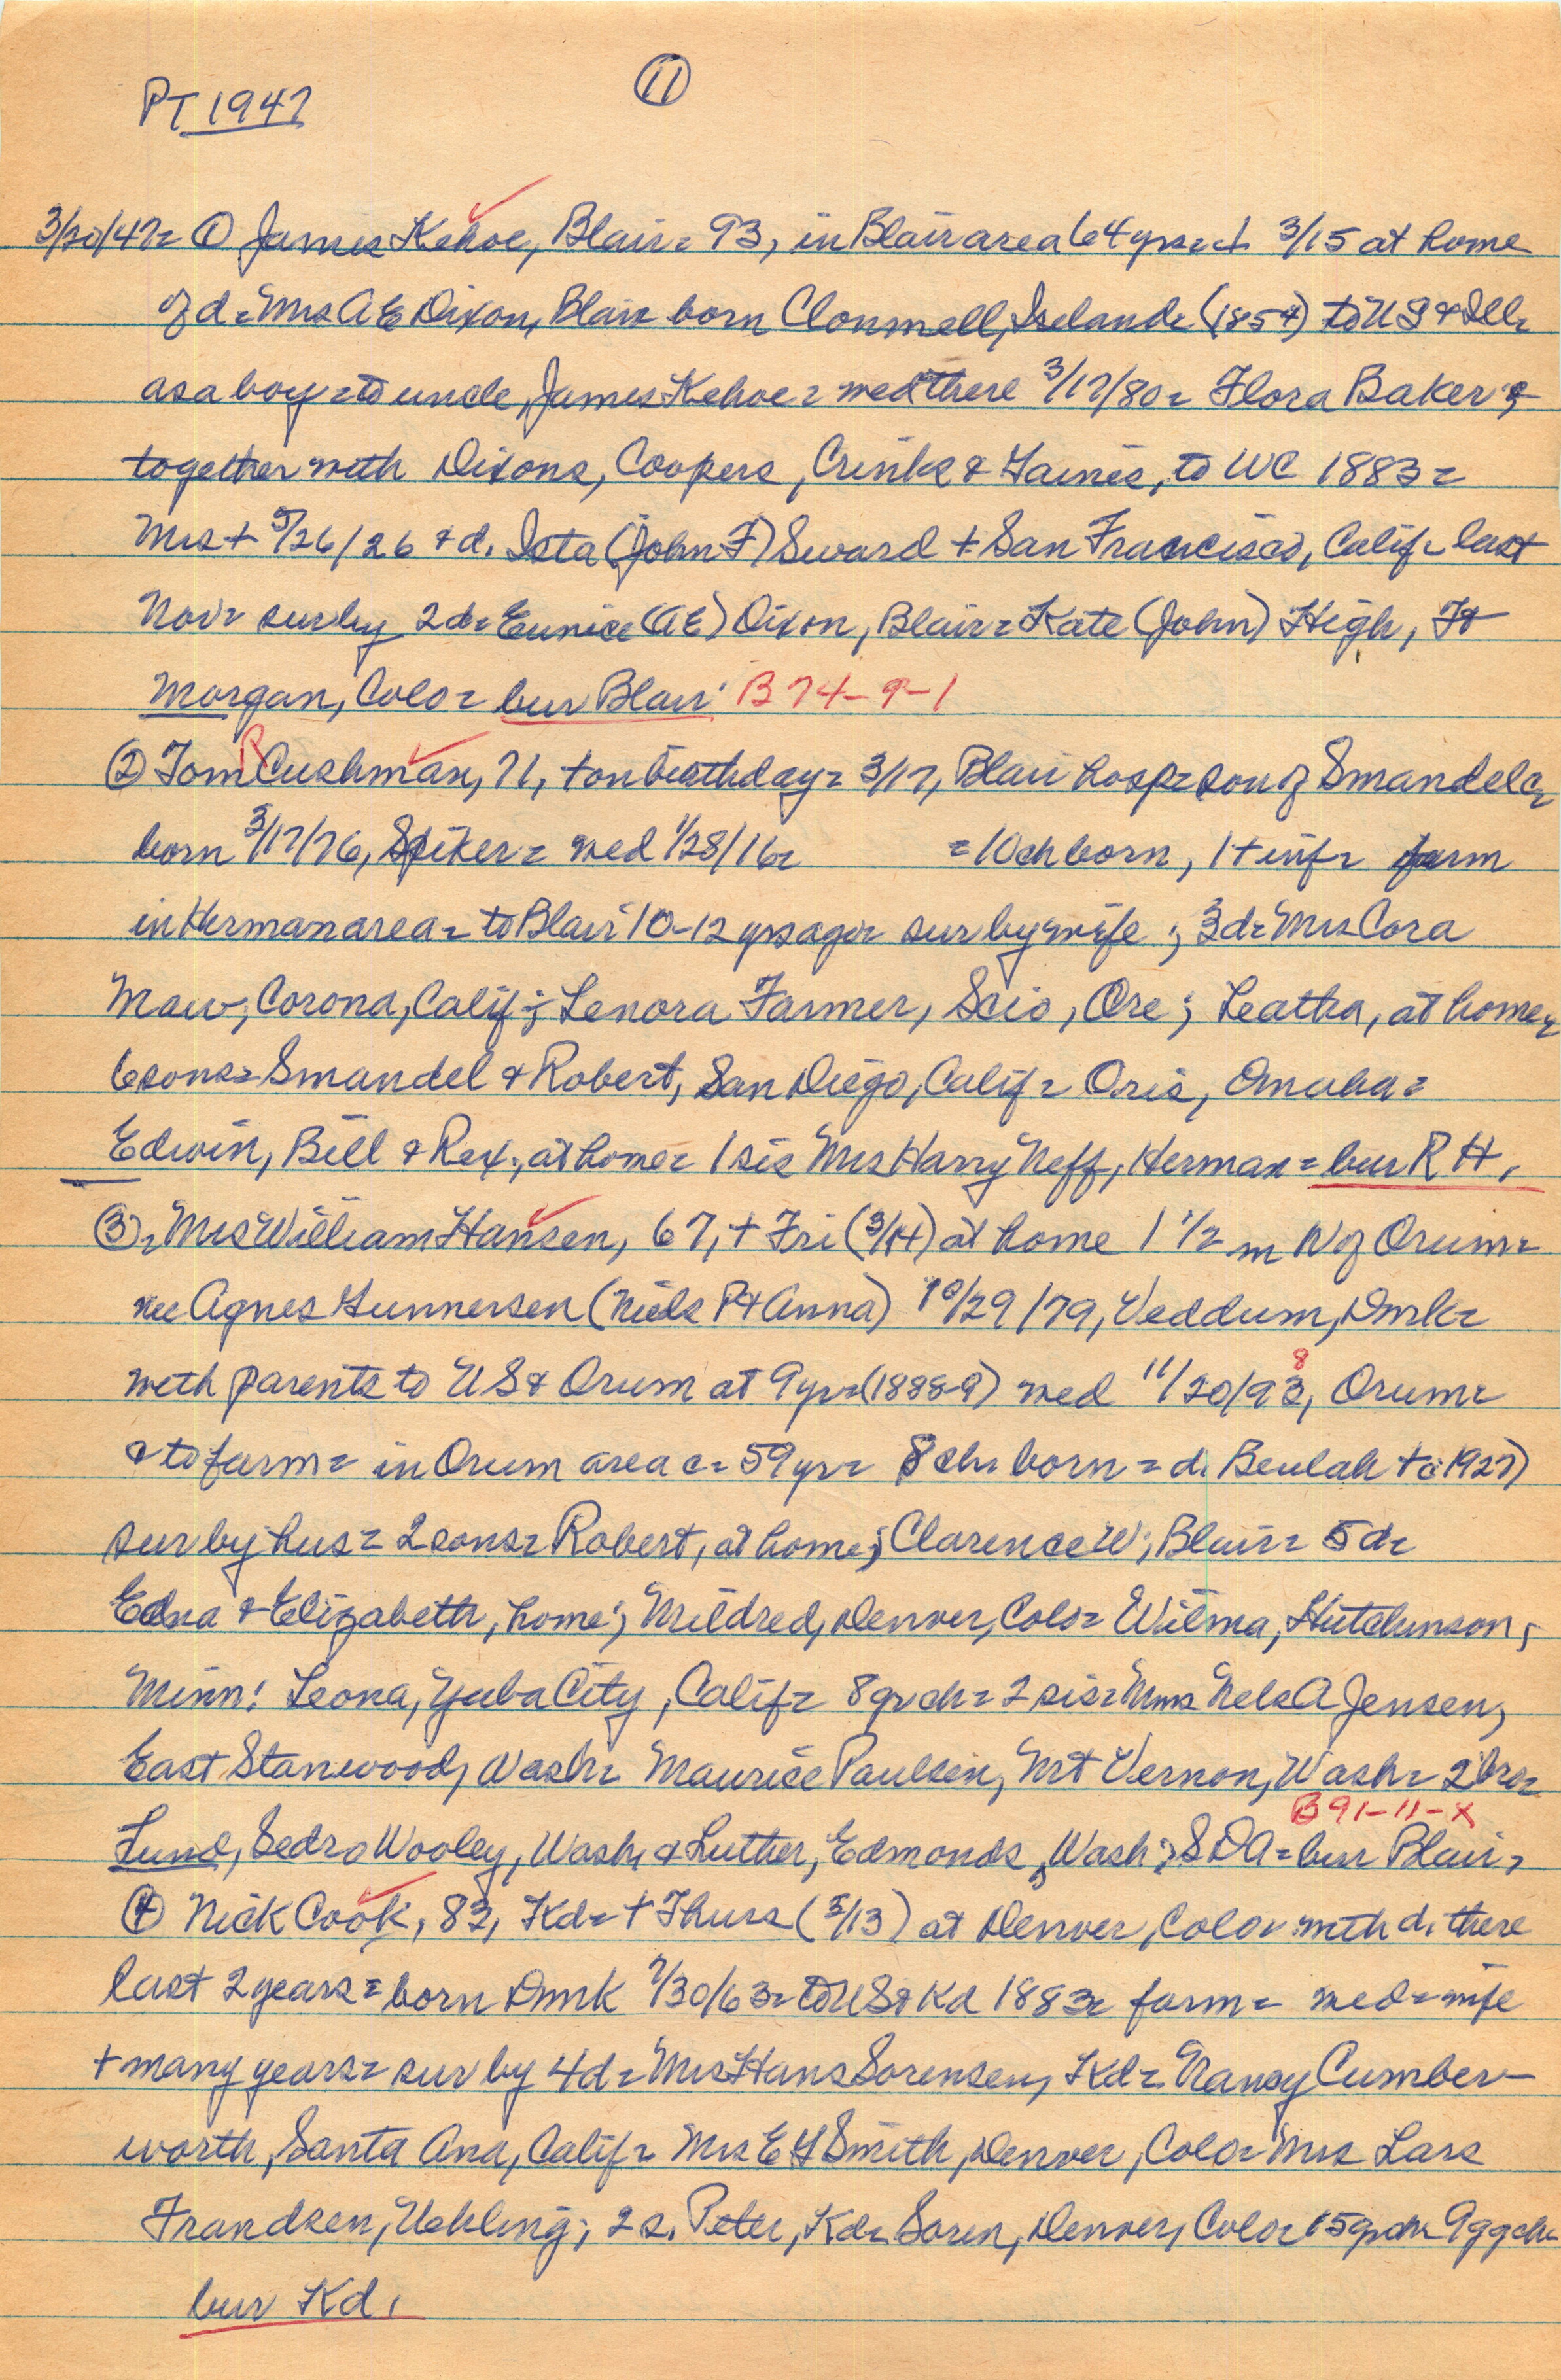 PT 1947
11
3/20/47= ① James Kehoe, Blair= 93, in Blair area 64 yrs= + 3/15 at home
of d= Mrs A E Dixon, Blair born Clonmell, Ireland= (1854) to US & Ill=
as a boy= to uncle, James Kehoe= med there 3/17/80= Flora Baker &
together with Dixons, Coopers, Crinks & Gaines, to WC 1883=
Mrs + 5/26/26 & d. Icta (John F) Seward + San Francisco, Calif= last
Nov= sur by 2 d= Eunice (AE) Dixon, Blair= Kate (John) High, Ft
Morgan, Colo= bur Blair B 74-9-1
② Tom R Cushman, 71, + on birthday= 3/17, Blair hosp= son of Smandel C=
born 3/17/76, Spiker= med 1/28/16= =10 ch born, 1 + inf= farm
in Herman area= to Blair 10-12 yrs ago= sur by wife; 3 d= Mrs Cora
Maw, Corona, Calif; Lenora Farmer, Scio, Ore; Leatha, at home=
6 sons= Smandel & Robert, San Diego, Calif= Oris, Omaha=
Edwin, Bill & Rex, at home= 1 sis Mrs Harry Neff, Herman= bur R H.
③= Mrs William Hansen, 67, + Fri (3/14) at home 1 1/2 m W of Orum=
nee Agnes Gunnersen (Niels P & Anna) 10/29/79, Veddum, Dmk=
with parents to US & Orum at 9 yr= (1888-9) med 11/20/93, 8 Orum=
& to farm= in Orum area c= 59 yr= 8 ch. born= d. Beulah + c 1927)
sur by hus= 2 sons= Robert, at home; Clarence W, Blair= 5 d=
Edna & Elizabeth, home; Mildred, Denver, Colo= Wilma, Hutchinson,
Minn; Leona, Yuba City, Calif= 8 gr ch= 2 sis= Mms Nels A Jensen,
East Stanwood, Wash= Maurice Paulsen, Mt Vernon, Wash= 2 bro=
B 91-11-X
Lund, Sedro Wooley, Wash, & Luther, Edmonds, Wash; SDA= bur Blair,
④ Nick Cook, 83, Kd= + Thurs (3/13) at Denver, Colo= with d. there
last 2 years= born Dmk 7/30/63= to US & Kd 1883= farm= med= wife
+ many years= sur by 4 d= Mrs Hans Sorensen, Kd= Nancy Cumber-
worth, Santa Ana, Calif= Mrs E G Smith, Denver, Colo= Mrs Lars
Frandsen, Uehling; 2 s. Peter, Kd= Soren, Denver, Colo= 15 gr ch= 9 ggch=
bur Kd.